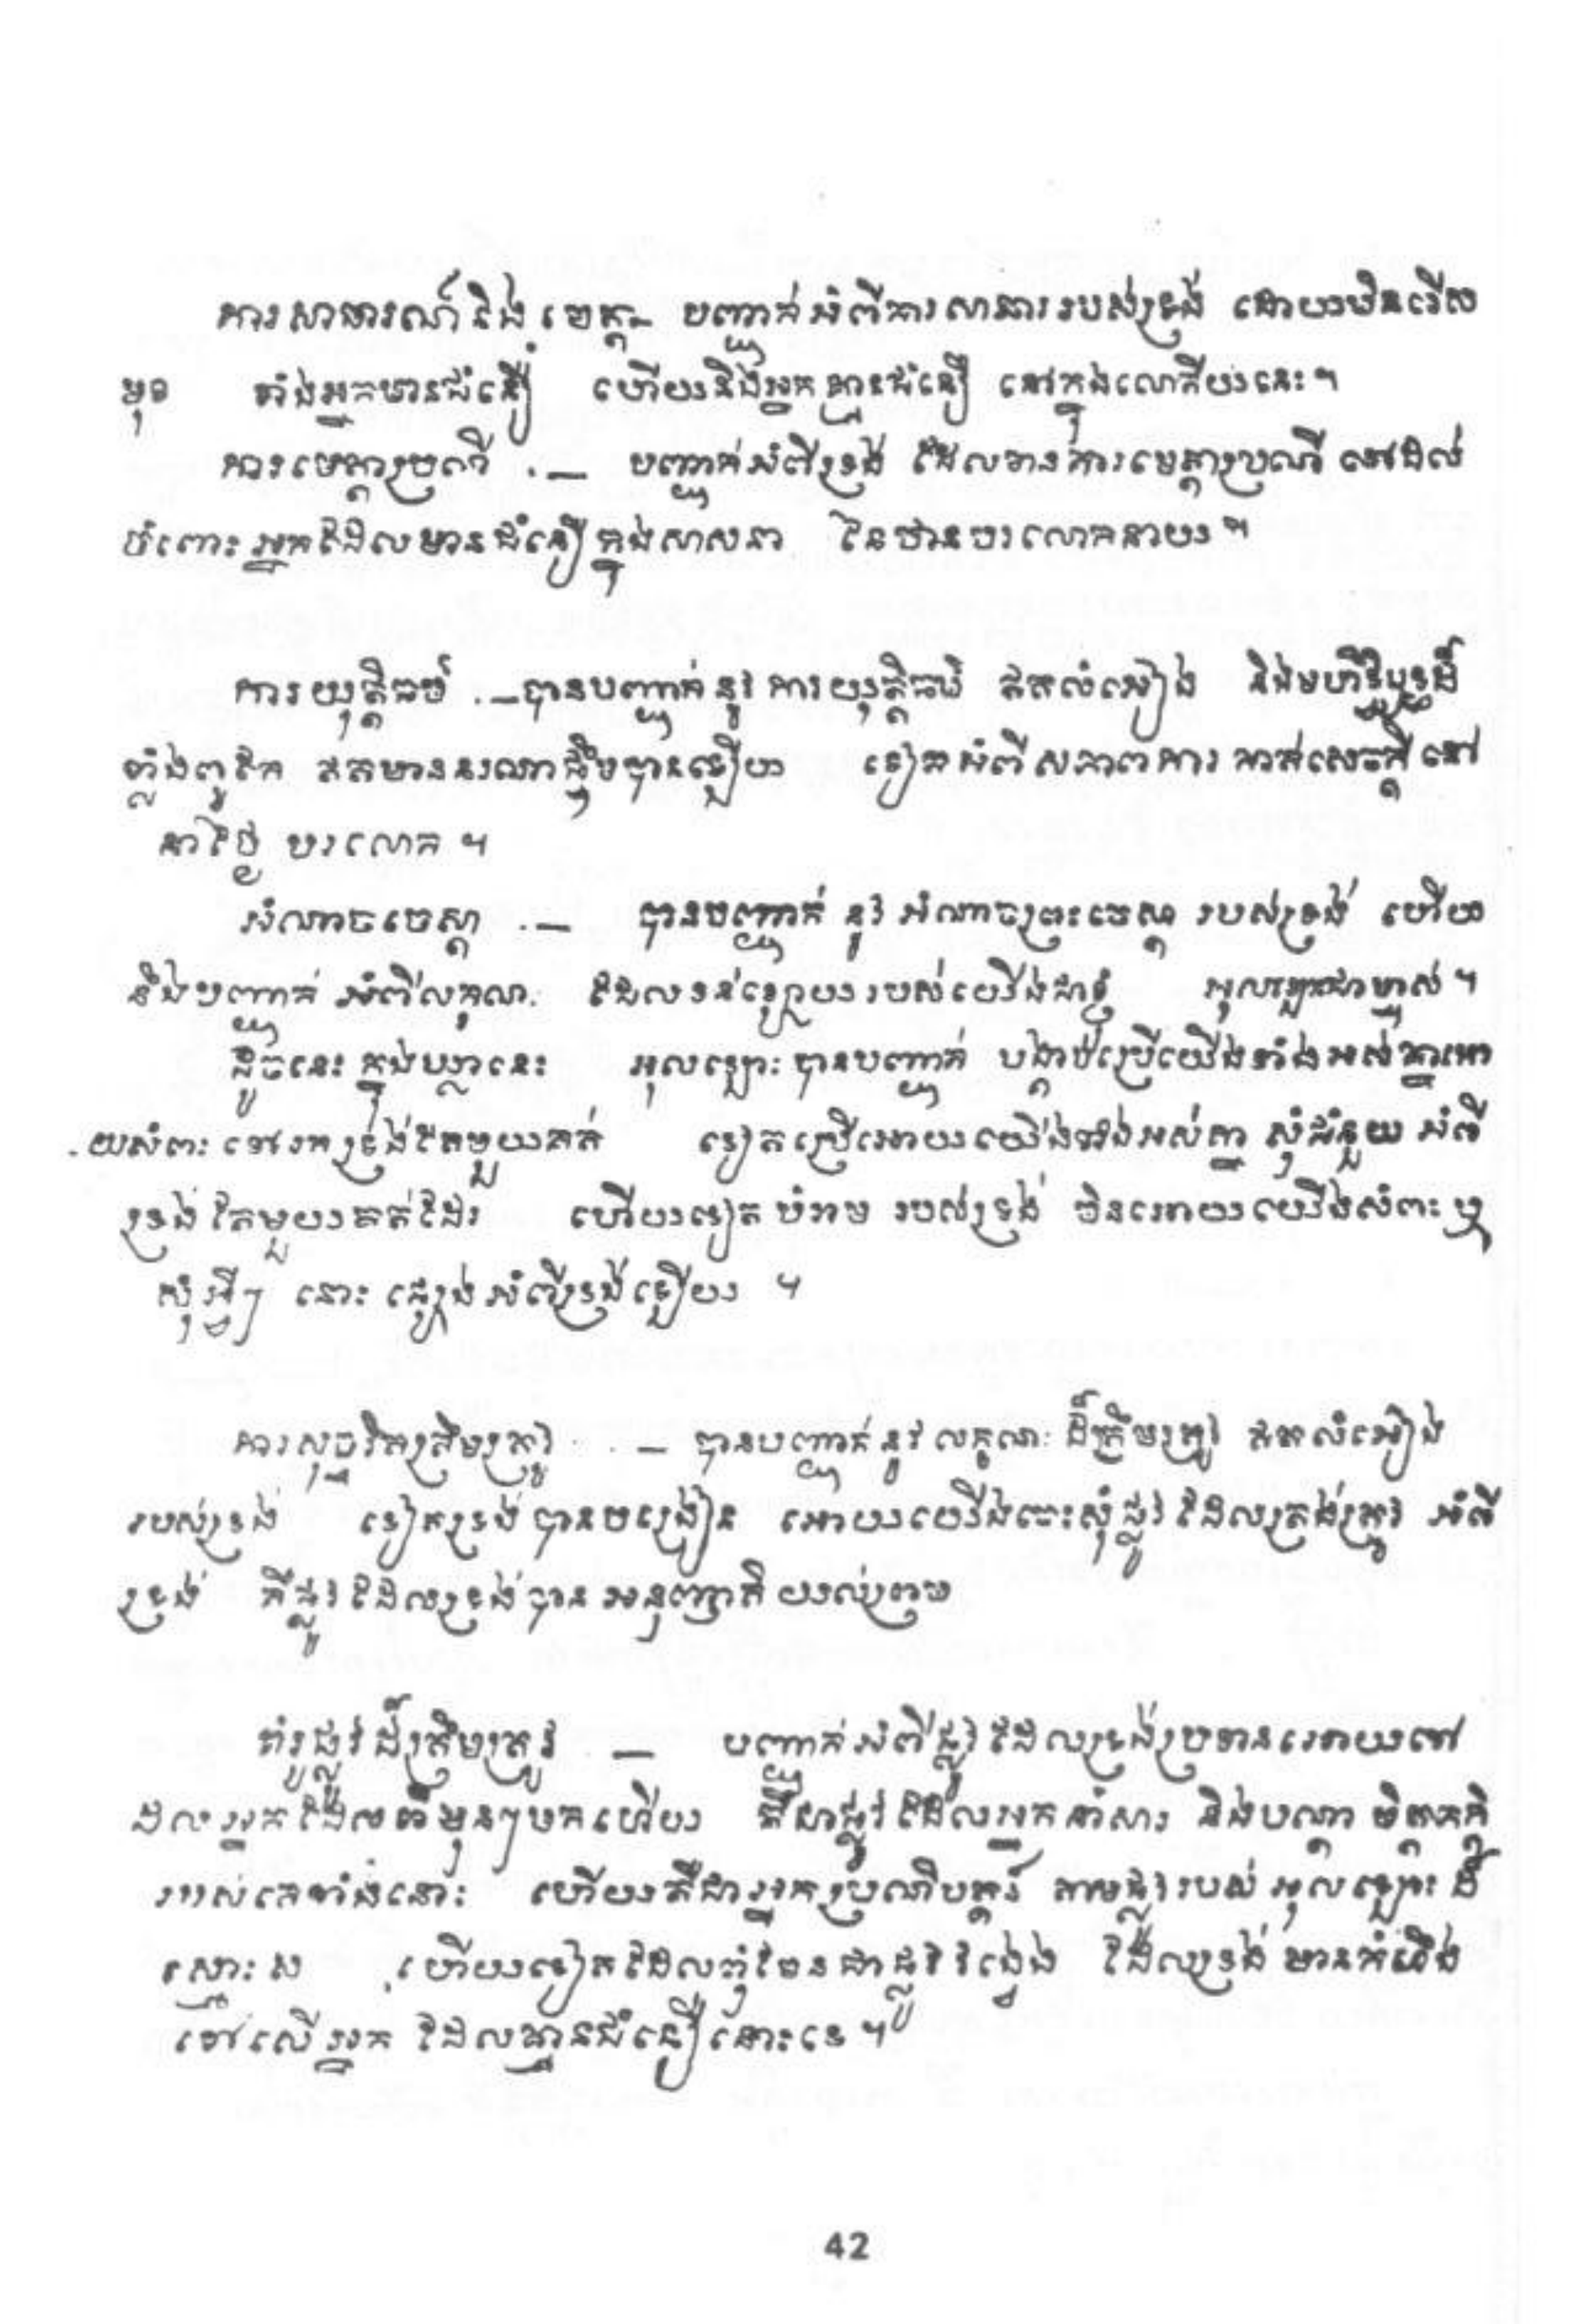 ការសាធារណ៍និង មេត្តា_ បញ្ជាក់អំពីការសាធាររបស់ទ្រង់ ដោយមិនរើស
មុខ ទាំងអ្នកមានជំនឿ ហើយនិងអ្នកគ្មានជំនឿ នៅក្នុងលោកីយនេះ។
ការមេត្តាប្រណី ._ បញ្ជាក់អំពីទ្រង់ ដែលមានការមេត្តាប្រណី ទៅដល់
ចំពោះអ្នកដែលមានជំនឿក្នុងសាសនា នៃឋានបរលោកនាយ។
ការយុត្តិធម៌ ._បានបញ្ជាក់នូវ ការយុត្តិធម៌ ឥតលំអៀង និងមហិទ្ធិឫទ្ធិដ៏
ខ្លាំងពូកែ ឥតមាននរណាផ្ទឹមបានឡើយ ទៀតអំពីសភាពការ កាត់សេចក្តី នៅ
នាថ្ងៃ បរលោក ។
អំណាចចេស្តា ._ បានបញ្ជាក់ នូវ អំណាចព្រះចេស្តា របស់ទ្រង់ ហើយ
និងបញ្ជាក់ អំពីលក្ខណៈ ដែលទន់ខ្សោយរបស់យើងជាខ្ញុំ អុលឡោះជាម្ចាស់។
ដូច្នេះ ក្នុងឃ្លានេះ អុលឡោះ បានបញ្ជាក់ បង្គាប់ប្រើយើងទាំងអស់គ្នាអោ
យសំពះ ទៅរកទ្រង់តែមួយគត់ ទៀតប្រើអោយយើងទាំងអស់គ្នា សុំជំនួយ អំពី
ទ្រង់ តែមួយគត់ដែរ ហើយទៀត បំរាម របស់ទ្រង់ មិនអោយយើងសំពះ ឬ
សុំអ្វីៗ នោះ ផ្សេងអំពីទ្រង់ឡើយ ។
ការសុច្ចរិតត្រឹមត្រូវ _ បានបញ្ជាក់នូវ លក្ខណៈ ដ៏ត្រឹមត្រូវ ឥតលំអៀង
របស់ទ្រង់ ទៀតទ្រង់បានបង្រៀន អោយយើងចេះសុំផ្លូវ ដែលត្រង់ត្រូវ អំពី
ទ្រង់ គឺផ្លូវដែលទ្រង់បាន អនុញ្ញាតិ យល់ព្រម
គំរូផ្លូវដ៏ត្រឹមត្រូវ _ បញ្ជាក់អំពីផ្លូវដែលទ្រង់ប្រទានអោយទៅ
ដល់អ្នកដែលពីមុនៗមកហើយ គឺជាផ្លូវដែលអ្នកនាំសារ និងបណ្តា ចិត្តភក្តិ
របស់គេទាំងនោះ ហើយគឺជាអ្នកប្រណិប័ត្តន៍ តាមផ្លូវរបស់ អុលឡោះ ដ៏
ស្មោះស ហើយទៀតដែលពុំមែនជាផ្លូវ វង្វេង ដែលទ្រង់ មានកំហឹង
ទៅលើអ្នក ដែលគ្មានជំនឿនោះទេ។
42